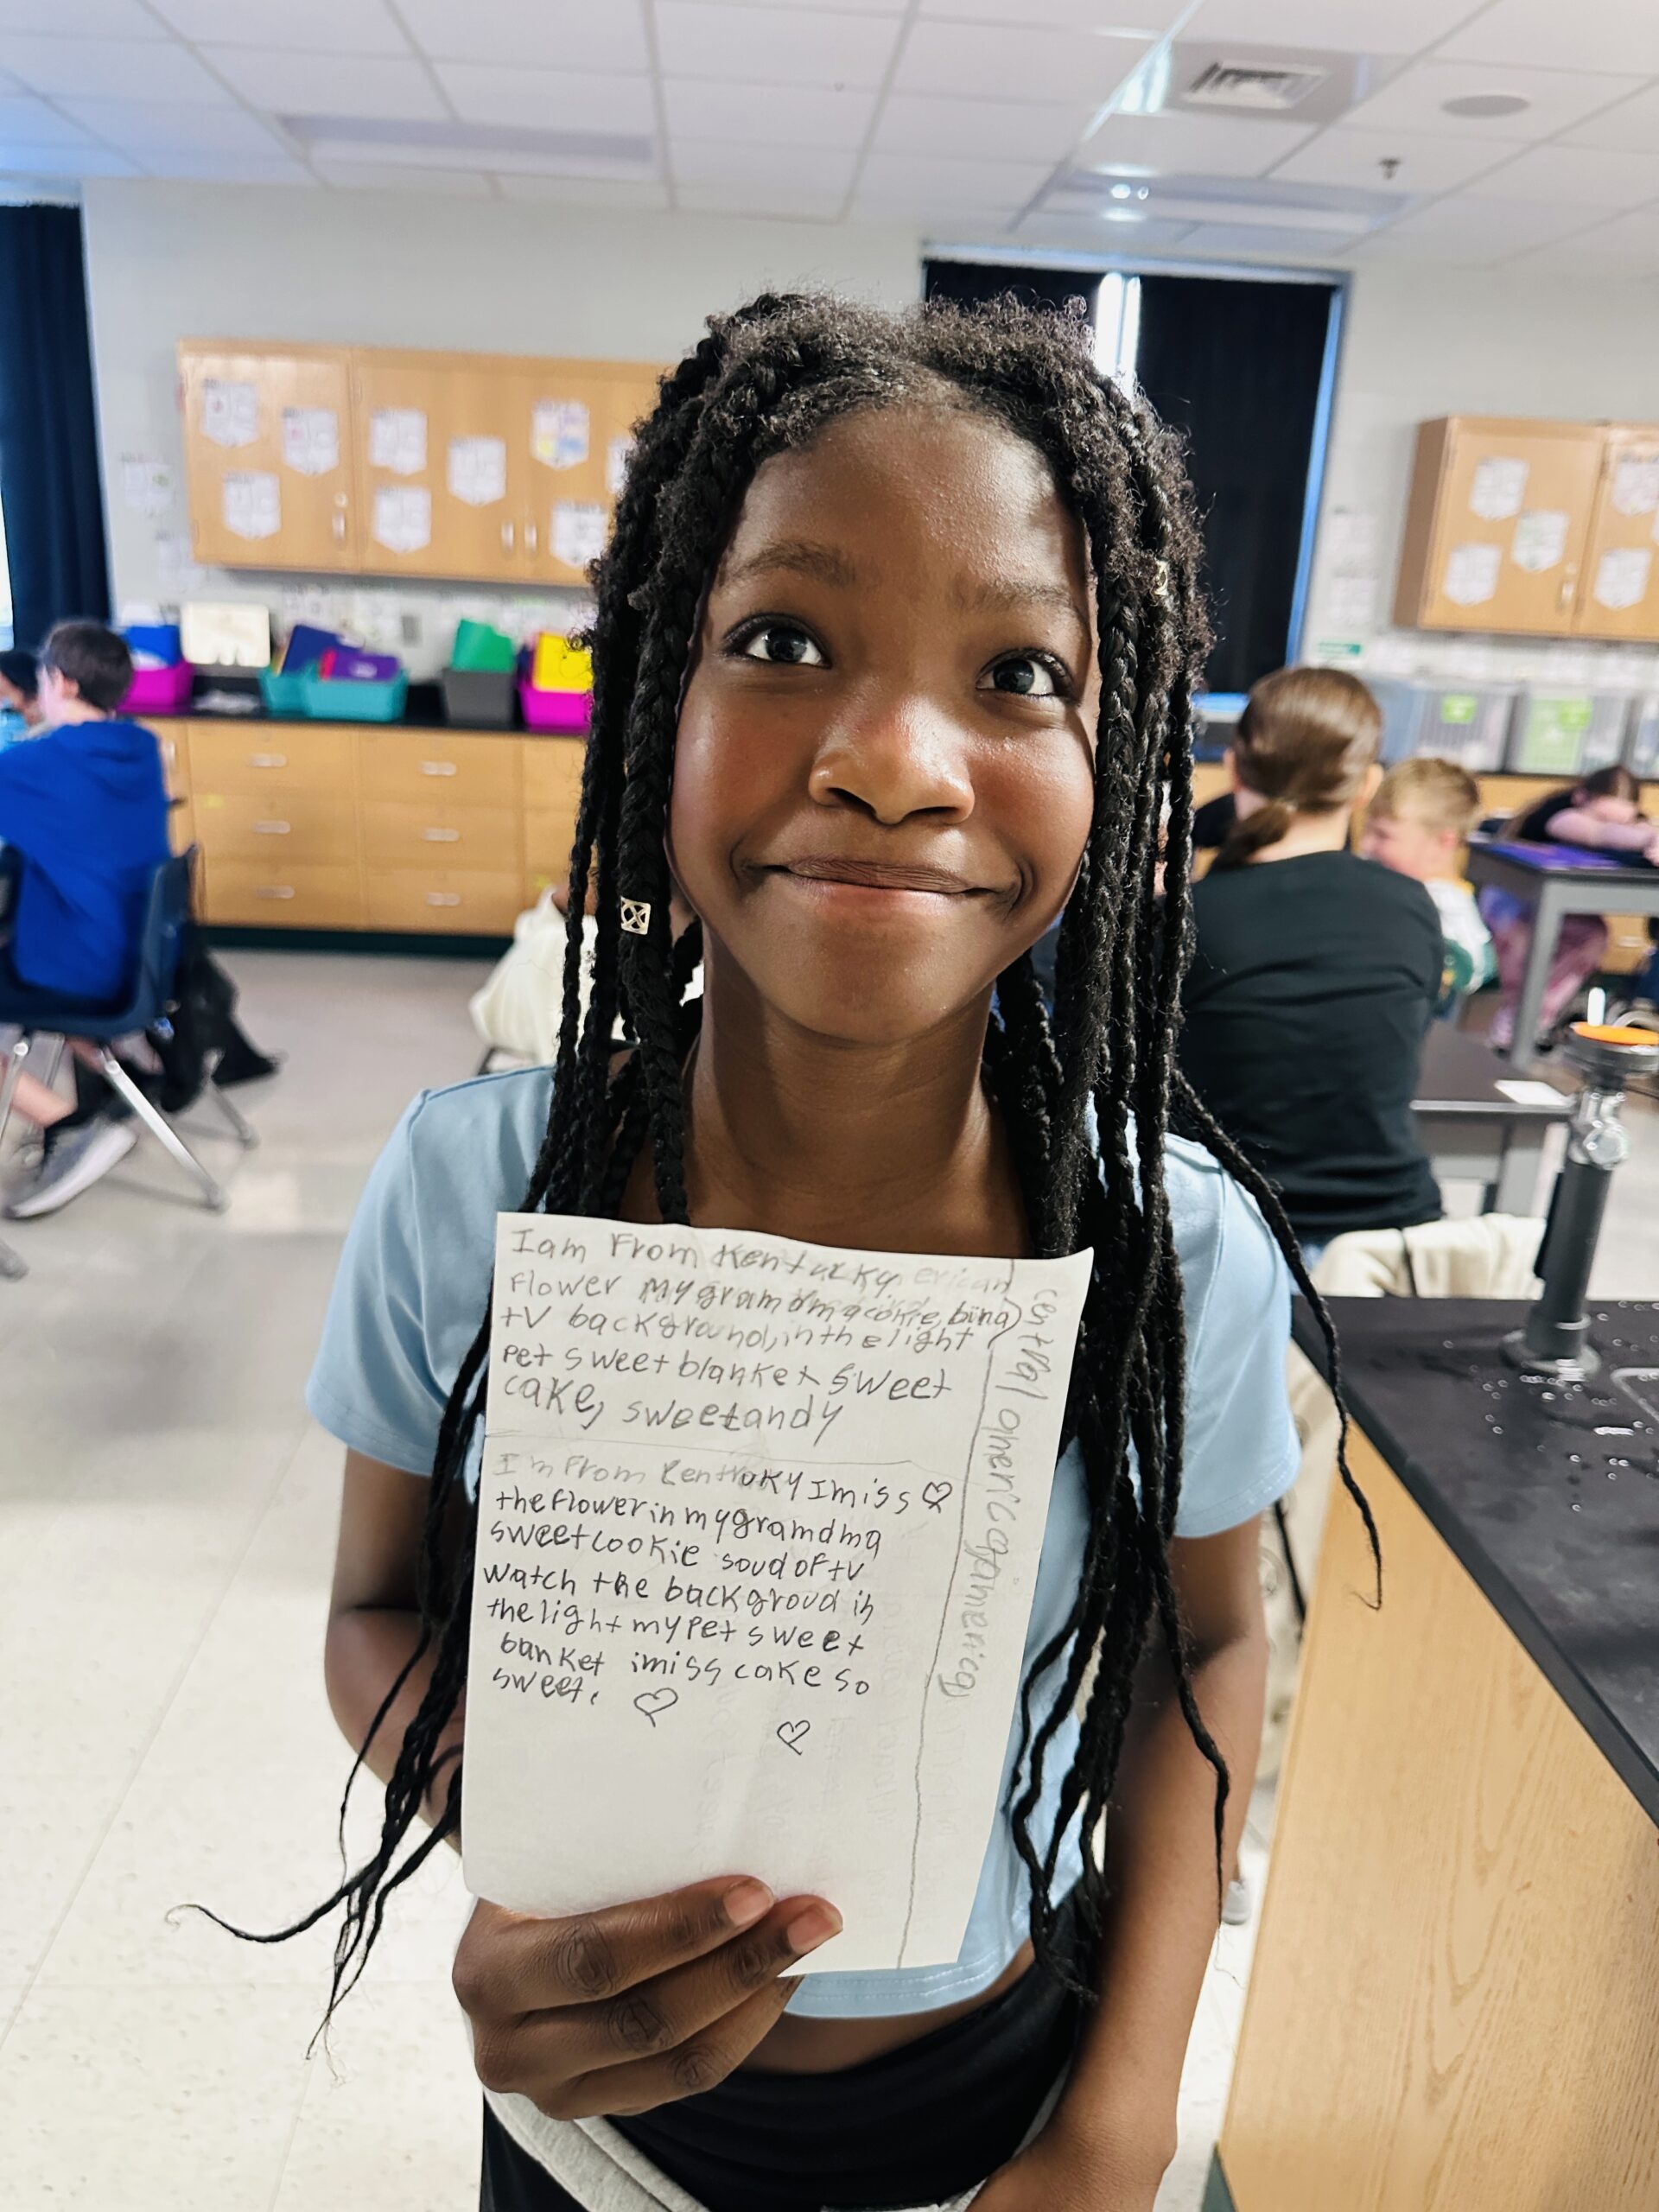 I am From Kentucky
Flower my grandma cokie, bina
tV background, in the light
Pet sweet blanket sweet
cake, sweetandy
I'm From Kentuoky I miss
the Flower in my gramdma
sweet cookie soud oF tv
watch the backgroud in
the light my Pet sweet
banket imiss cake so
sweet.
central americ